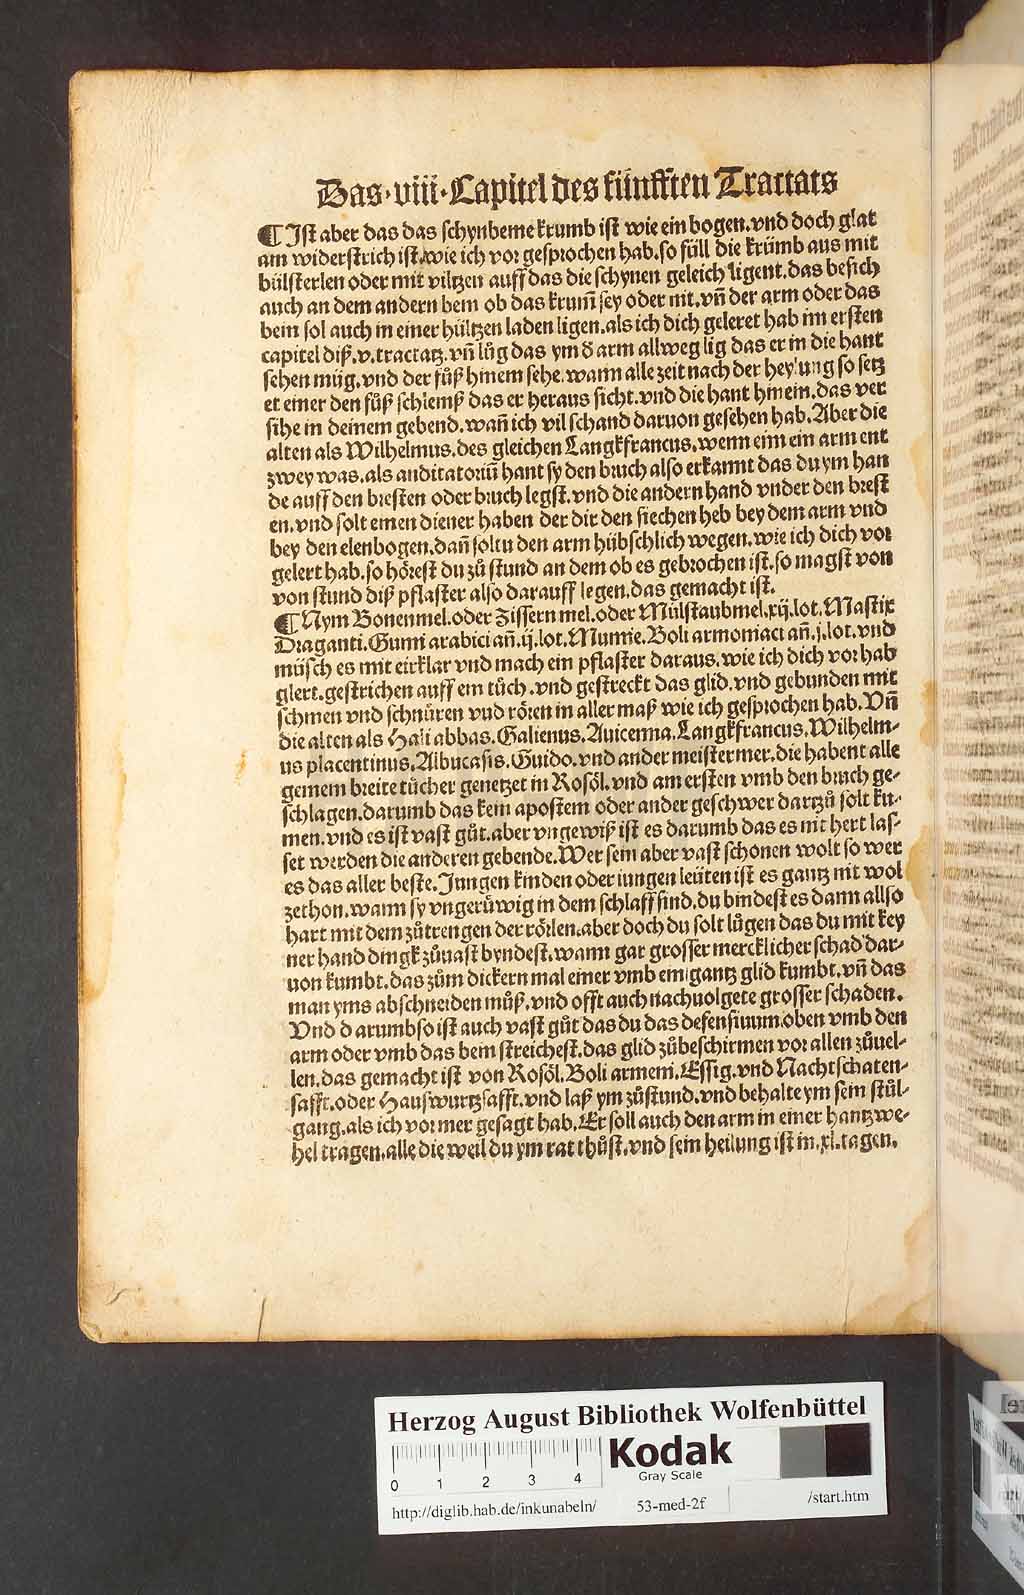 Das · viii · Capitel des fünfften Tractats
¶ Ist aber das das schynbeme krumb ist wie ein bogen. vnd doch glat
am widerstrich ist, wie ich vor gesprochen hab. so füll die krümb aus mit
bülsterlen oder mit viltzen auff das die schynen geleich ligent. das besich
auch an dem andern bem ob das krum̃ sey oder nit. vñ der arm oder das
bein sol auch in einer hültzen laden ligen. als ich dich geleret hab im ersten
capitel diß. v. tractatz. vñ lůg das ym d̃ arm allweg lig das er in die hant
sehen müg. vnd der fůß hinein sehe. wann alle zeit nach der heylung so setz
et einer den fůß schlemß das er heraus sicht. vnd die hant hinein. das ver
sihe in deinem gebend. wañ ich vil schand daruon gesehen hab. Aber die
alten als Wilhelmus. des gleichen Langkfrancus. wenn eim ein arm ent
zwey was. als auditatoriũ hant sy den bruch also erkannt das du ym han
de auff den bresten oder bruch legst. vnd die andern hand vnder den brest
en. vnd solt einen diener haben der dir den siechen heb bey dem arm vnd
bey den elenbogen. dañ soltu den arm hübschlich wegen. wie ich dich vor
gelert hab. so hörest du zů stund an dem ob es gebrochen ist. so magst von
von stund diß pflaster also darauff legen. das gemacht ist.
¶ Nym Bonenmel. oder Zissern mel. oder Mülstaubmel. xij. lot. Mastix
Draganti. Gumi arabici añ. ij. lot. Mumie. Boli armomaci añ. j. lot. vnd
müsch es mit eirklar vnd mach ein pflaster daraus. wie ich dich vor hab
glert. gestrichen auff ein tůch. vnd gestreckt das glid. vnd gebunden mit
schinen vnd schnüren vnd rören in aller maß wie ich gesprochen hab. Vñ
die alten als Hali abbas. Galienus. Auicenna. Langkfrancus. Wilhelm-
us placentinus. Albucasis. Guido. vnd ander meister mer. die habent alle
gemein breite tücher genetzet in Rosöl. vnd am ersten vmb den bruch ge-
schlagen. darumb das kein apostem oder ander geschwer dartzů solt ku-
men. vnd es ist vast gůt. aber vngewiß ist es darumb das es nit hert las-
set werden die anderen gebende. Wer sein aber vast schonen wolt so wer
es das aller beste. Jungen kinden oder iungen leüten ist es gantz nit wol
zethon. wann sy vngerůwig in dem schlaff sind. du bindest es dann allso
hart mit dem zůtrengen der rörlen. aber doch du solt lůgen das du mit key
ner hand dingk zůuast byndest. wann gar grosser mercklicher schad dar-
uon kumbt. das zům dickern mal einer vmb ein gantz glid kumbt. vñ das
man yms abschneiden můß. vnd offt auch nachuolgete grosser schaden.
Vnd d arumb so ist auch vast gůt das du das defensiuum. oben vmb den
arm oder vmb das bein streichest. das glid zůbeschirmen vor allen zůuel-
len. das gemacht ist von Rosöl. Boli armeni. Essig. vnd Nachtschaten-
safft. oder Hauswurtzsafft. vnd laß ym zůstund. vnd behalte ym sein stůl-
gang. als ich vormer gesagt hab. Er soll auch den arm in einer hantzwe-
hel tragen. alle die weil du ym rat thůst. vnd sein heilung ist in. xl. tagen.
Herzog August Bibliothek Wolfenbüttel
Kodak
Gray Scale
0 1 2 3 4
http://diglib.hab.de/inkunabeln/ 53-med-2f /start.htm